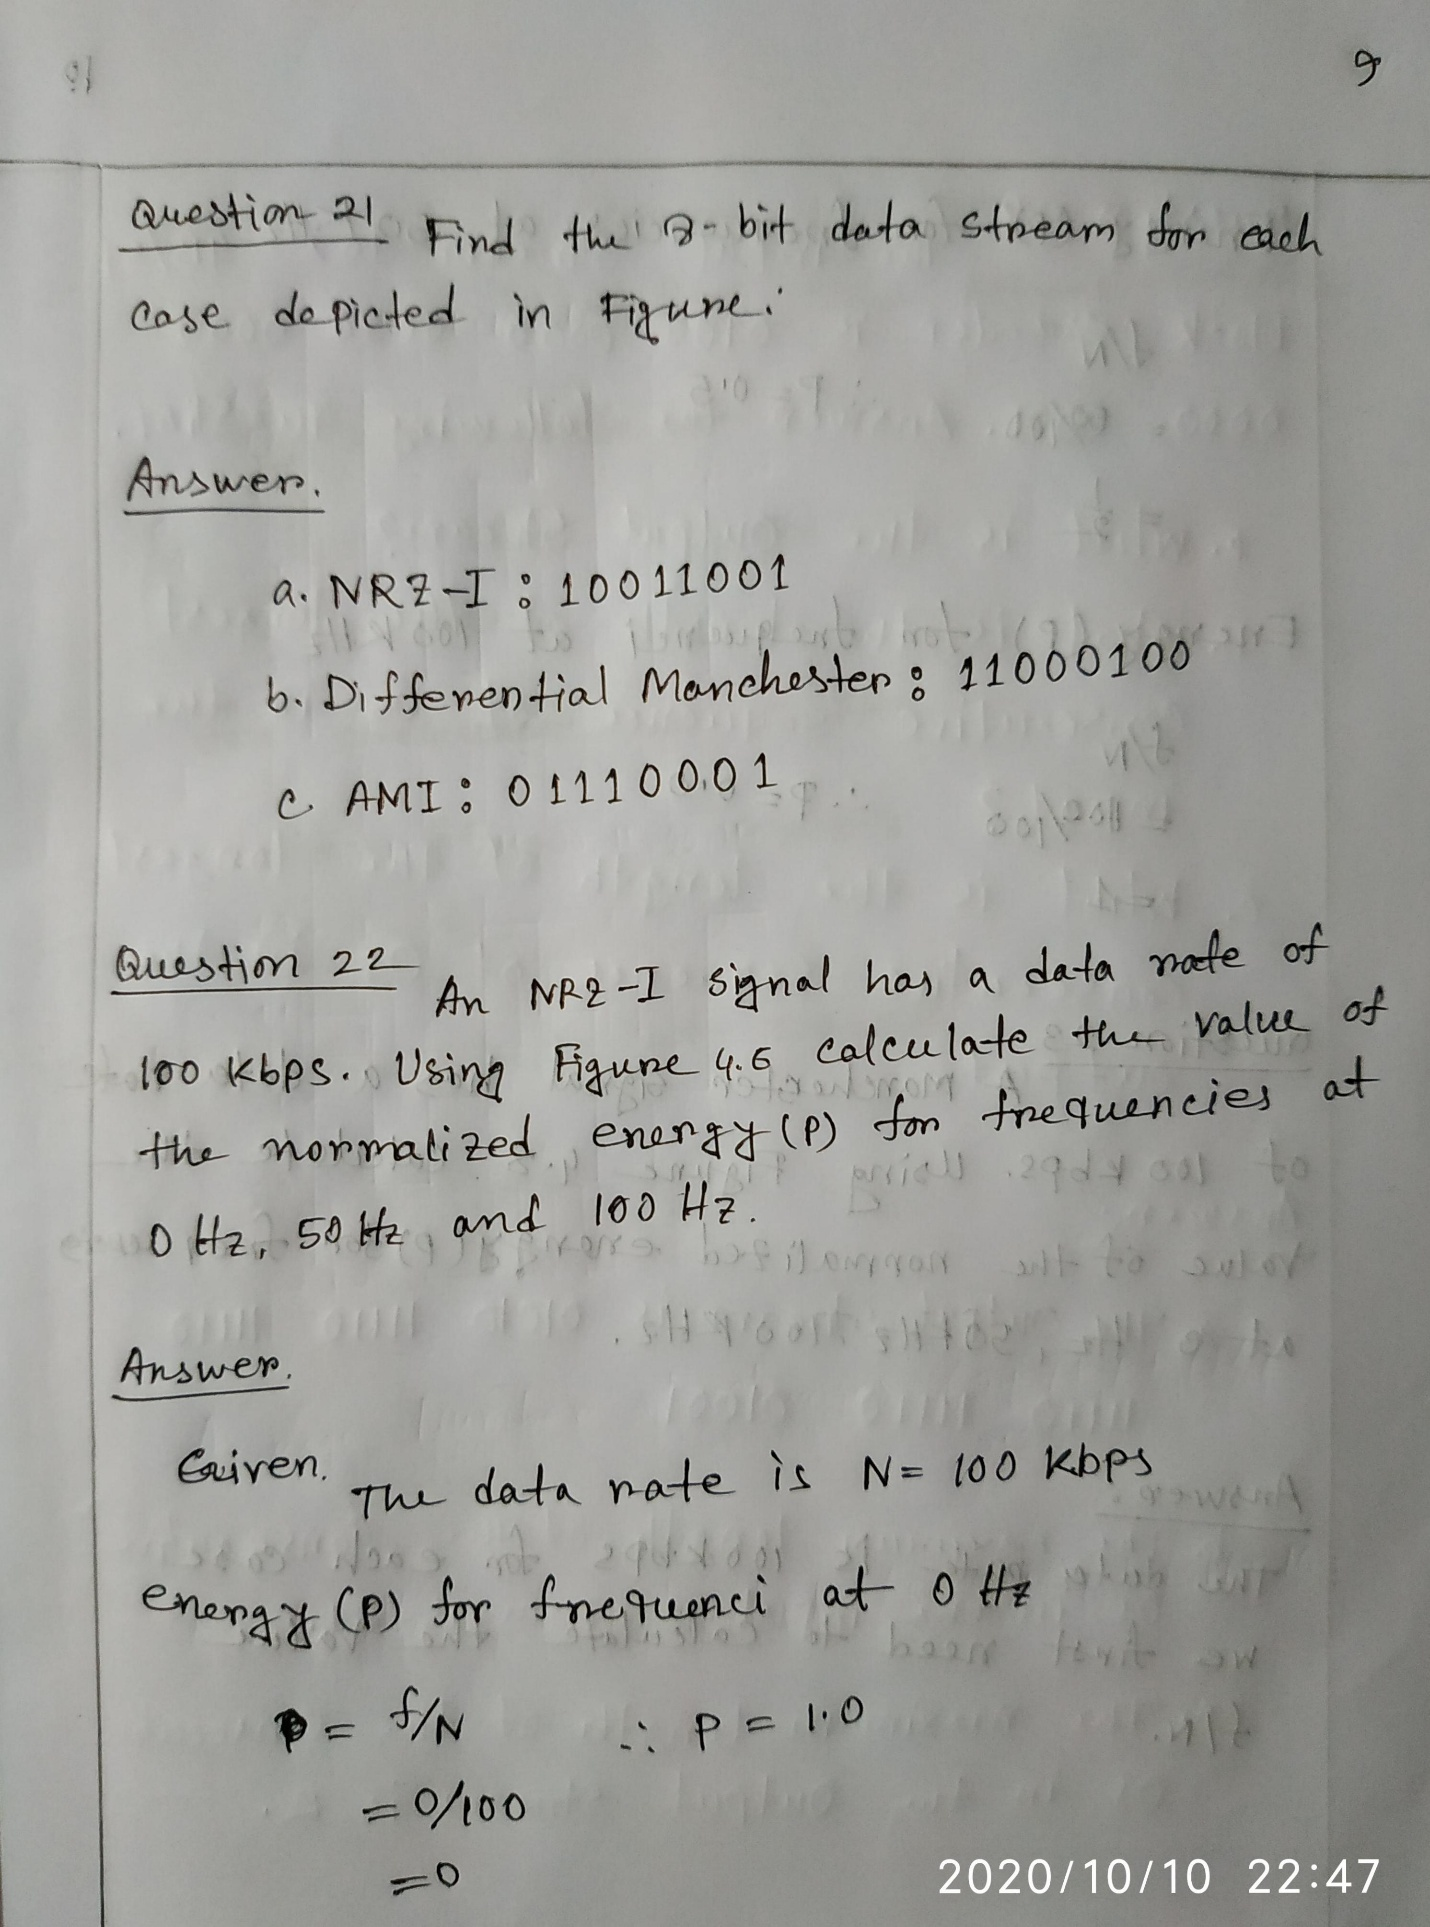 9
Question 21 Find the 8-bit data stream for each
case depicted in Figure.
Answer.
a. NRZ-I : 10011001
b. Differential Manchester : 11000100
c. AMI : 01110001
Question 22 An NRZ-I signal has a data rate of
100 Kbps. Using Figure 4.6 calculate the value of
the normalized energy (P) for frequencies at
0 Hz, 50 Hz and 100 Hz.
Answer.
Given. The data rate is N = 100 Kbps
energy (P) for frequenci at 0 Hz
= f/N ∴ P = 1.0
= 0/100
= 0
2020/10/10 22:47